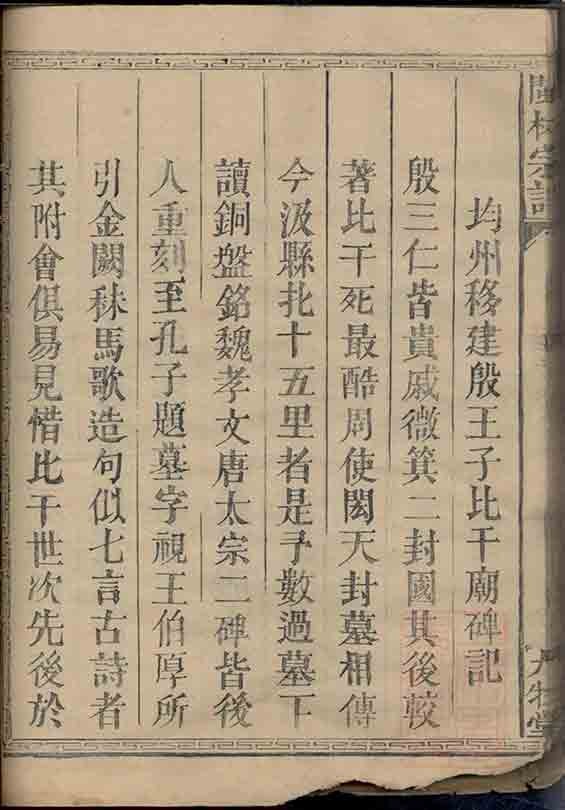 閩林宗譜
均州移建殷王子比干廟碑記
殷三仁皆貴戚微箕二封國其後較
著比干死最酷周使閎夭封墓相傳
今汲縣北十五里者是予數過墓下
讀銅盤銘魏孝文唐太宗二碑皆後
人重刻至孔子題墓字視王伯厚所
引金闕秣馬歌造句似七言古詩者
其附會俱易見惜比干世次先後於